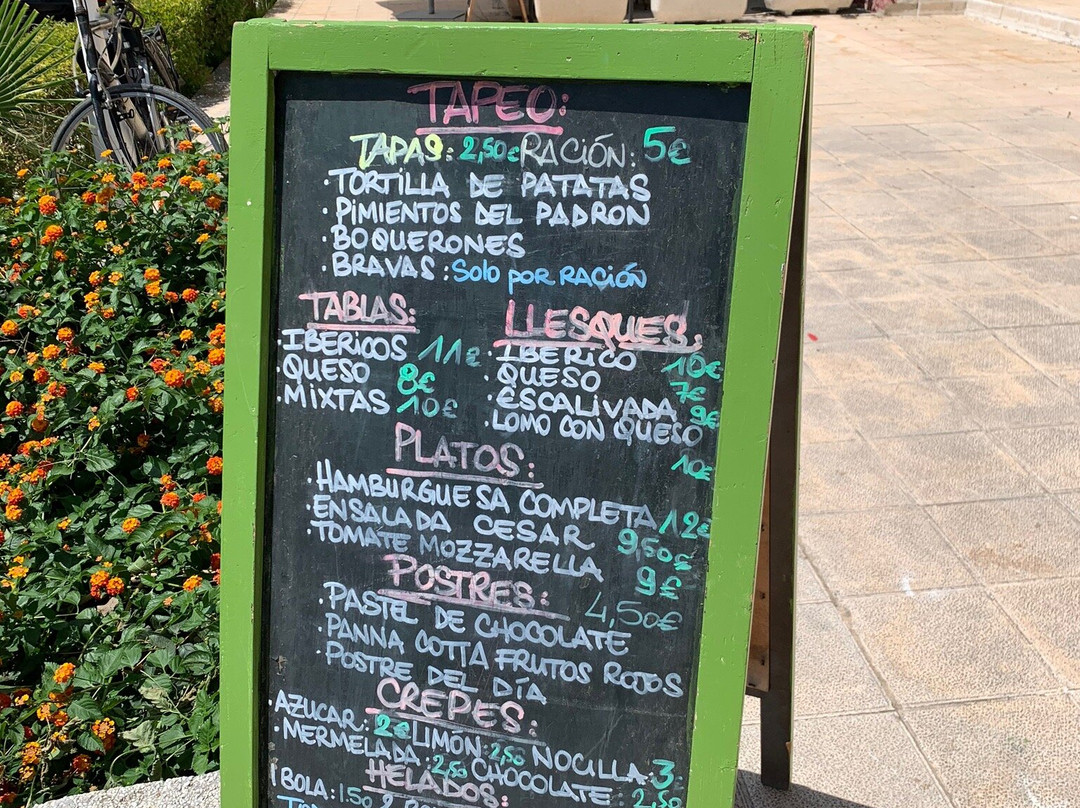 TAPEO:
TAPAS: 2,50€ RACIÓN: 5€
·TORTILLA DE PATATAS
·PIMIENTOS DEL PADRON
·BOQUERONES
·BRAVAS: Solo por RACIÓN
TABLAS:
·IBERICOS 11€
·QUESO 8€
·MIXTAS 10€
LLESQUES:
·IBERICO 10€
·QUESO 7€
·ESCALIVADA 9€
·LOMO CON QUESO 10€
PLATOS:
·HAMBURGUESA COMPLETA 12€
·ENSALADA CESAR 9,50€
·TOMATE MOZZARELLA 9€
POSTRES: 4,50€
·PASTEL DE CHOCOLATE
·PANNA COTTA FRUTOS ROJOS
·POSTRE DEL DÍA
CREPES:
·AZUCAR: 2€ LIMÓN: 2,50 NOCILLA: 3
·MERMELADA: 2,50 CHOCOLATE: 2,50
HELADOS:
1 BOLA: 1.50 2